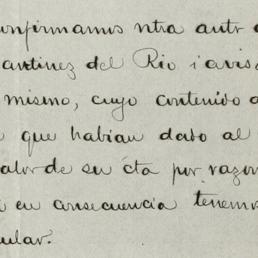 onfirmamos ntra antr
artinez del Rio i avis
mismo, cuyo contenido
que habian dado al
alor de su cta por razon
en consecuencia tenem
ular.